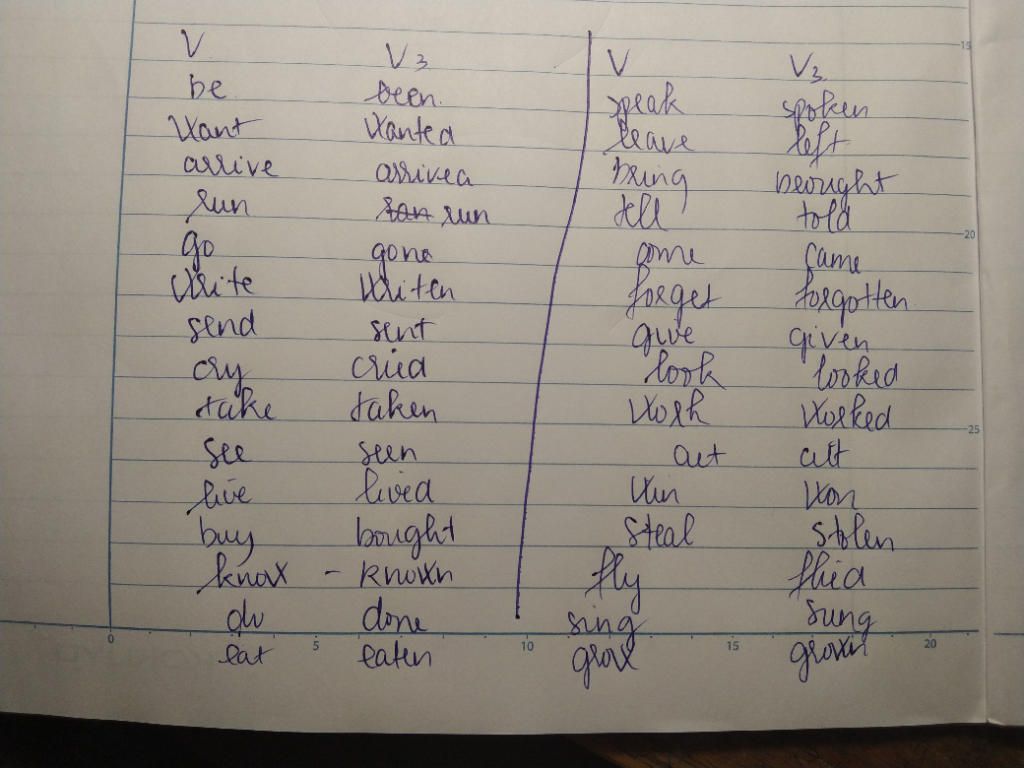 V V3
be been
want wanted
arrive arrived
run ran run
go gone
write writen
send sent
cry cried
take taken
see seen
live lived
buy bought
know - known
do done
eat eaten
V V3
speak spoken
leave left
bring brought
tell told
come came
forget forgotten
give given
look looked
work worked
cut cut
win won
steal stolen
fly flied
sing sung
grow grown
15
20
25
0 5 10 15 20